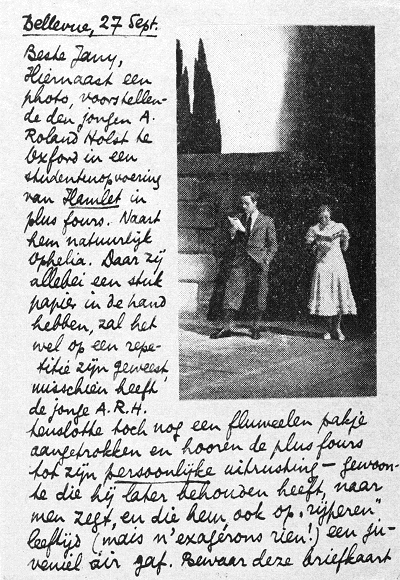 Bellevue, 27 Sept.
Beste Jany,
Hiernaast een
photo, voorstellen-
de den jongen A.
Roland Holst te
Oxford in een
studentenopvoering
van Hamlet in
plus fours. Naast
hem natuurlijk
Ophelia. Daar zij
allebei een stuk
papier in de hand
hebben, zal het
wel op een repe-
titie zijn geweest,
misschien heeft
de jonge A.R.H.
tenslotte toch nog een fluweelen pakje
aangetrokken en hooren de plus fours
tot zijn persoonlijke uitrusting – gewoon-
te die hij later behouden heeft, naar
men zegt, en die hem ook op "rijperen"
leeftijd (mais n'exagérons rien!) een ju-
veniel air gaf. Bewaar deze briefkaart